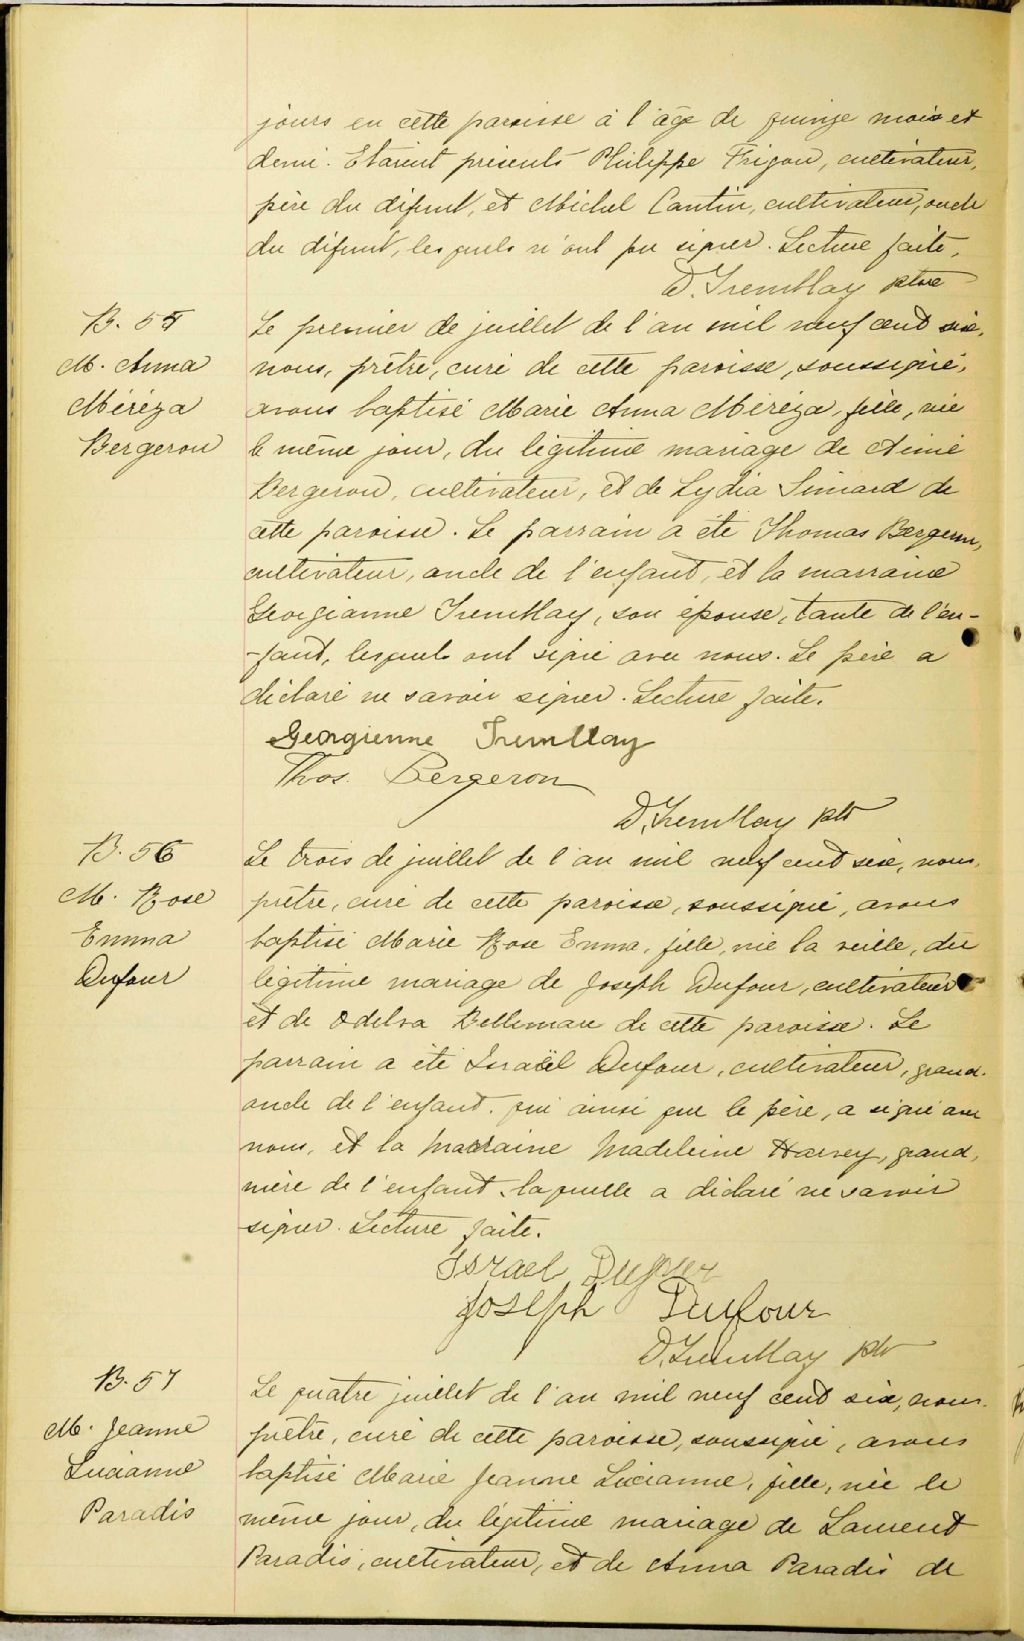 jours en cette paroisse à l'âge de quinze mois et
demi. Etaient présents Philippe Frigon, cultivateur,
père du défunt, et Michel Cantin, cultivateur, oncle
du défunt, lesquels n'ont pu signer. Lecture faite,
D. Tremblay ptre
B. 55
M. Anna
Méréza
Bergeron
Le premier de juillet de l'an mil neuf cent six,
nous, prêtre, curé de cette paroisse, soussigné,
avons baptisé Marie Anna Méréza, fille, née
le même jour, du légitime mariage de Aimé
Bergeron, cultivateur, et de Lydia Simard de
cette paroisse. Le parrain a été Thomas Bergeron,
cultivateur, oncle de l'enfant, et la marraine
Georgianne Tremblay, son épouse, tante de l'en-
-fant, lesquels ont signé avec nous. Le père a
déclaré ne savoir signer. Lecture faite.
Georgienne Tremblay
Thos. Bergeron
D. Tremblay ptr
B. 56
M. Rose
Emma
Dufour
Le trois de juillet de l'an mil neuf cent six, nous,
prêtre, curé de cette paroisse, soussigné, avons
baptisé Marie Rose Emma, fille, née la veille, du
légitime mariage de Joseph Dufour, cultivateur
et de Odelva Bellemare de cette paroisse. Le
parrain a été Israël Dufour, cultivateur, grand-
oncle de l'enfant, qui ainsi que le père, a signé avec
nous, et la marraine Madeleine Harvey, grand,
mère de l'enfant, laquelle a déclaré ne savoir
signer. Lecture faite.
Israel Dufour
Joseph Dufour
D. Tremblay ptr
B. 57
M. Jeanne
Lucianne
Paradis
Le quatre juillet de l'an mil neuf cent six, nous.
prêtre, curé de cette paroisse, soussigné, avons
baptisé Marie Jeanne Lucianne, fille, née le
même jour, du légitime mariage de Laurent
Paradis, cultivateur, et de Anna Paradis de